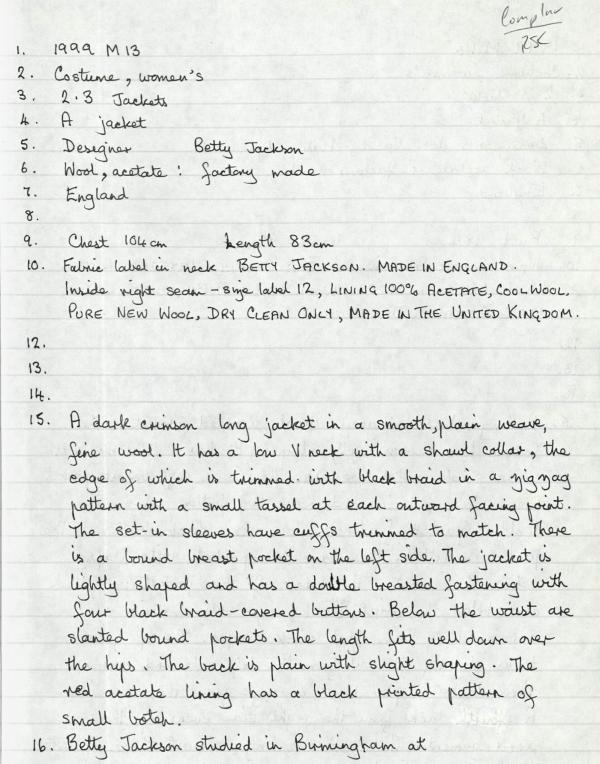 1. 1999 M 13
2. Costume, women's
3. 2.3 Jackets
4. A jacket
5. Designer Betty Jackson
6. Wool, acetate : factory made
7. England
8.
9. Chest 104cm Length 83cm
10. Fabric label in neck BETTY JACKSON. MADE IN ENGLAND.
Inside right seam - size label 12, LINING 100% ACETATE, COOLWOOL.
PURE NEW WOOL, DRY CLEAN ONLY, MADE IN THE UNITED KINGDOM.
12.
13.
14.
15. A dark crimson long jacket in a smooth, plain weave,
fine wool. It has a low V neck with a shawl collar, the
edge of which is trimmed with black braid in a zigzag
pattern with a small tassel at each outward facing point.
The set-in sleeves have cuffs trimmed to match. There
is a bound breast pocket on the left side. The jacket is
lightly shaped and has a double breasted fastening with
four black braid-covered buttons. Below the waist are
slanted bound pockets. The length fits well down over
the hips. The back is plain with slight shaping. The
red acetate lining has a black printed pattern of
small boteh.
16. Betty Jackson studied in Birmingham at